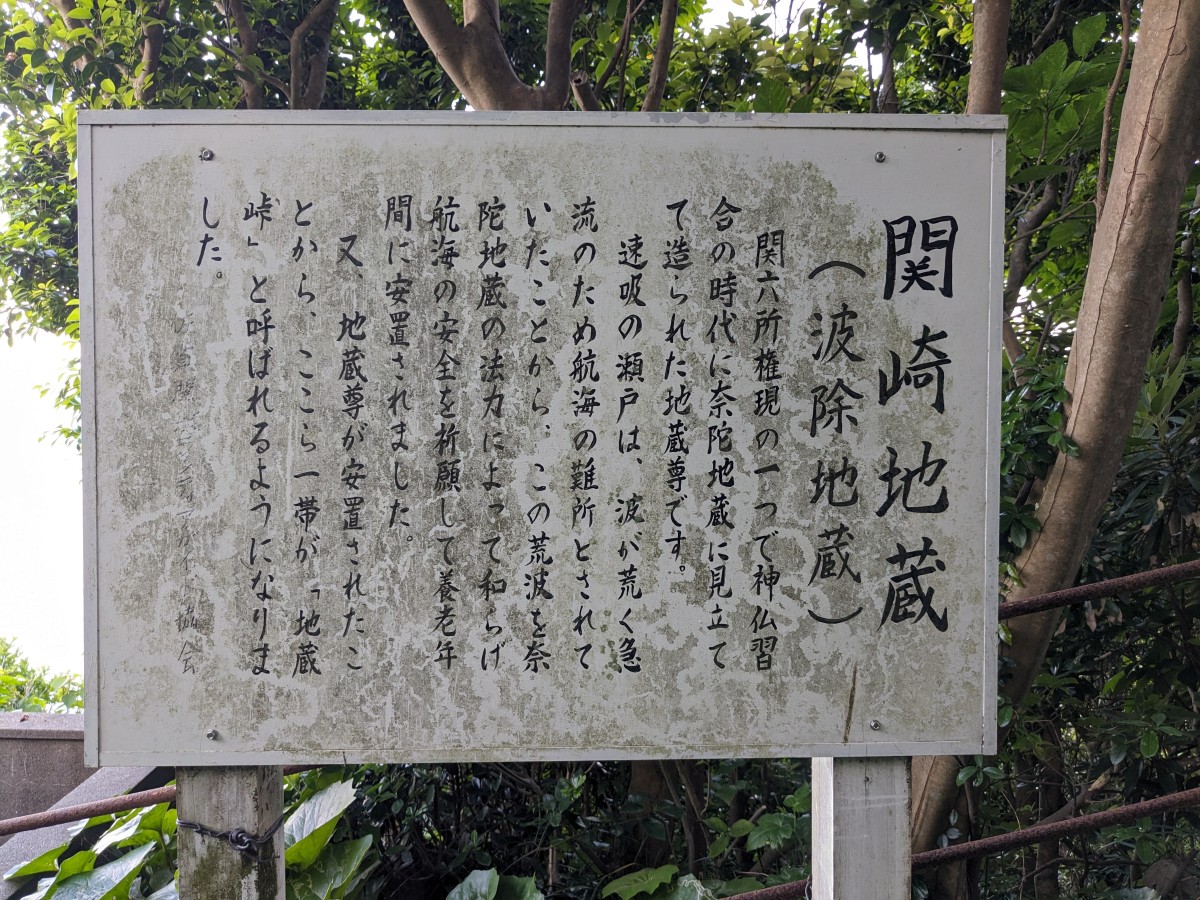 関崎地蔵
（波除地蔵）
関六所権現の一つで神仏習
合の時代に奈陀地蔵に見立て
て造られた地蔵尊です。
速吸の瀬戸は、波が荒く急
流のため航海の難所とされて
いたことから、この荒波を奈
陀地蔵の法力によって和らげ
航海の安全を祈願して養老年
間に安置されました。
又、地蔵尊が安置されたこ
とから、ここら一帯が「地蔵
峠」と呼ばれるようになりま
した。
協会